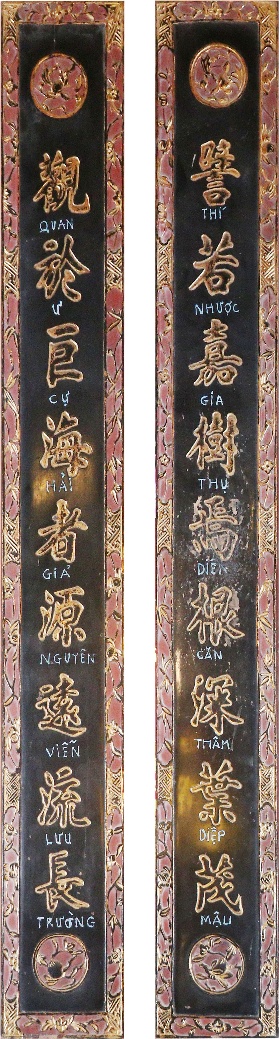 譬若嘉樹焉根深葉茂
THÍ NHƯỢC GIA THỤ DIÊN CĂN THÂM DIỆP MẬU
觀於巨海者源遠流長
QUAN Ư CỰ HẢI GIẢ NGUYÊN VIỄN LƯU TRƯỜNG